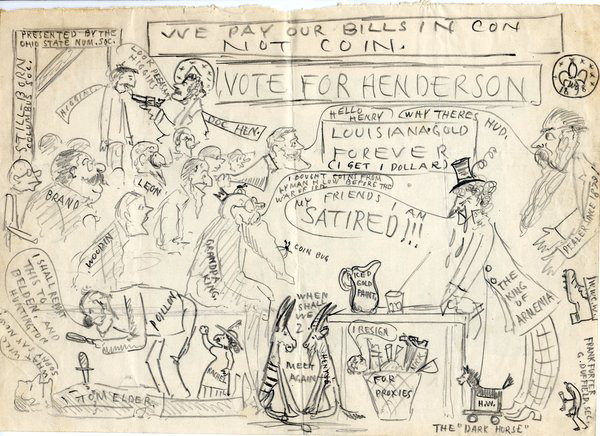 WE PAY OUR BILLS IN CON
NOT COIN.
PRESENTED BY THE
OHIO STATE NUM. SOC.
VOTE FOR HENDERSON
STILL-BORN
COLUMBUS SOC.
LOOK
HENDERSON
DOC HEN.
HELLO
HENRY
(WHY THERES HUD.
LOUISIANA GOLD
FOREVER
(I GET 1 DOLLAR)
I BOUGHT COINS FROM
LYMAN H. LOW BEFORE THE
WAR OF 1812
MY FRIENDS I AM
SATIRED)!!
BRAND
LEON
WOODIN
GRANDPA KING
COIN BUG
DEALER INC.
I SHALL REFER
THIS TO
BELDEN, AND
HUNTINGTON
WHO'S
GRAY HAIR
WILL
BOLLIN
TOM ELDER
WHEN
SHALL
WE
2
MEET
AGAIN
ICED
GOLD
PAINT
I RESIGN
FOR
PROXIES
THE
KING
OF
ARMENIA
H.W.
THE "DARK HORSE"
FRANKFURTER
G. DUFFIELD, SEC.